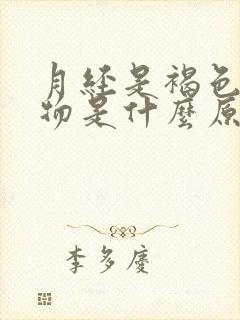 月经是褐色
物是什麼原
李多慶